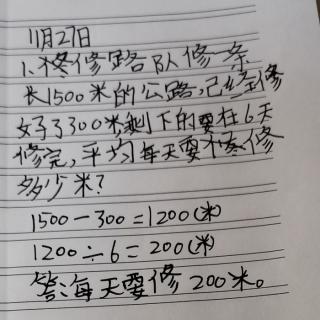 11月27日
1.修路队修一条
长1500米的公路,已经修
好了300米剩下的要在6天
修完,平均每天要修
多少米?
1500-300=1200(米)
1200÷6=200(米)
答:每天要修200米。